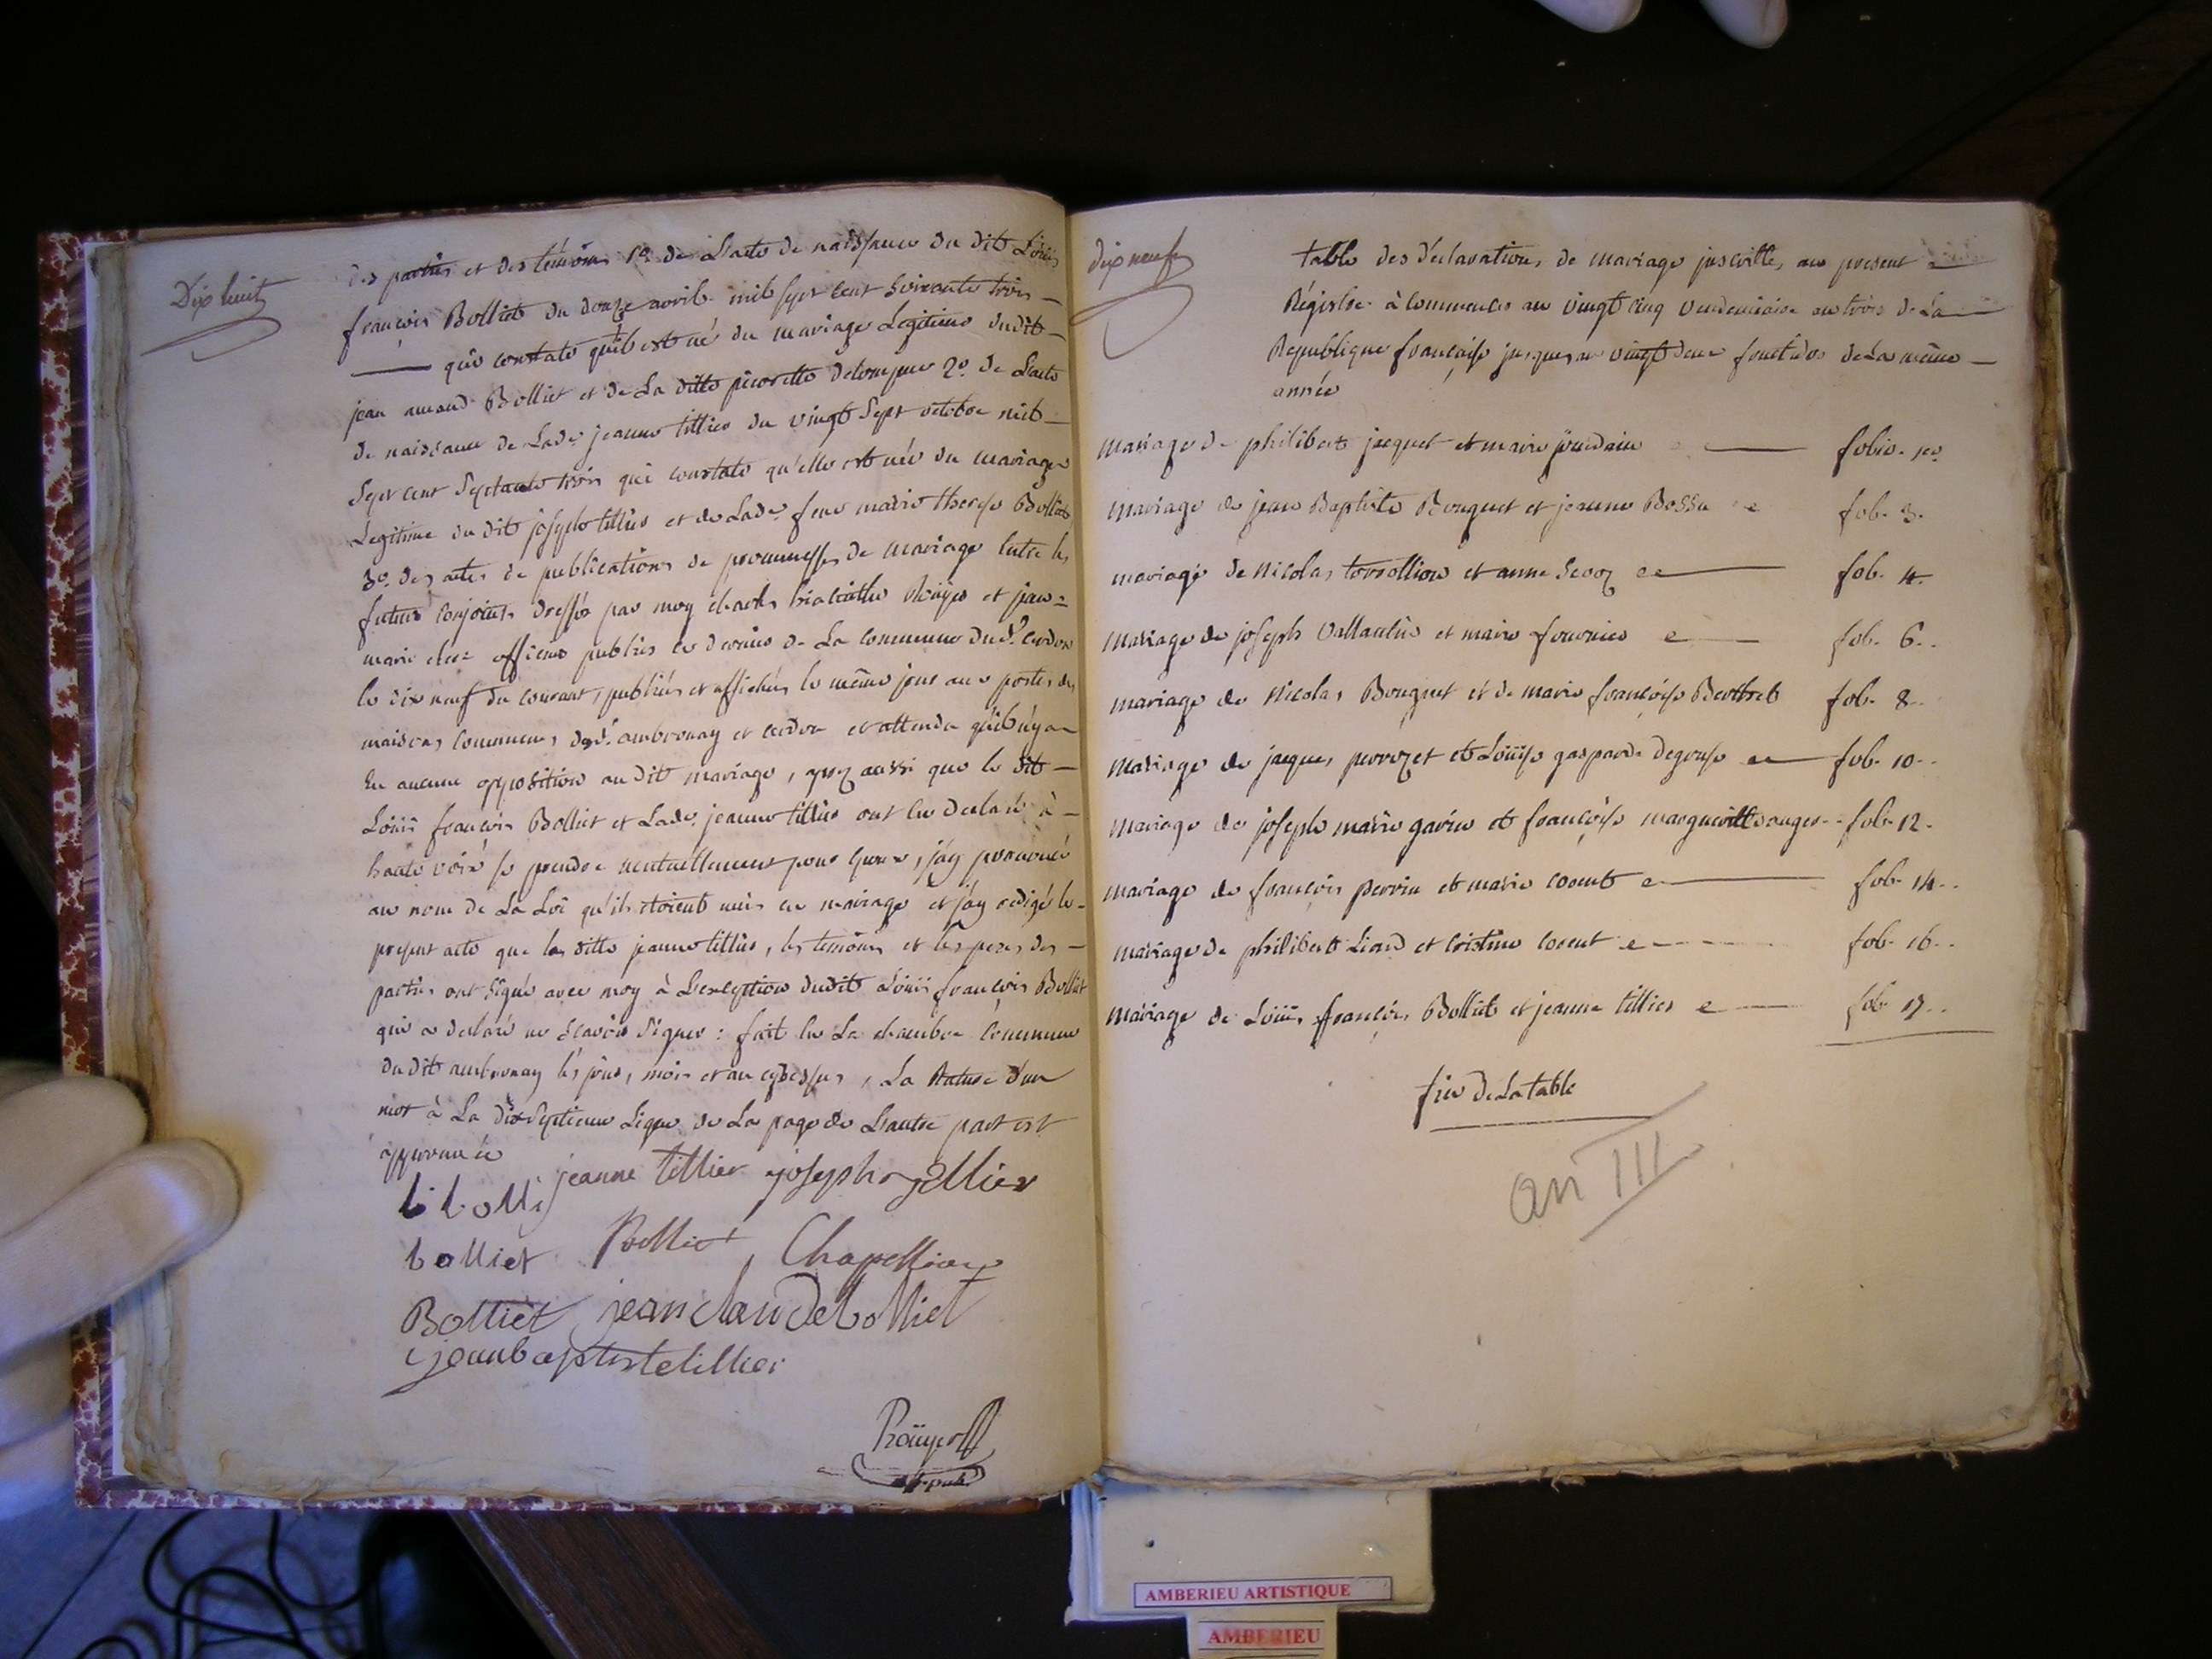 Dix huit
des parties et des témoins 1o. de L'acte de naissance du dit Loüis
françois Bolliet du douze avril mil sept cent soixante trois —
— qui constate qu'il est né du mariage Legitime dudit —
jean Bolliet et de La ditte 2o. de L'acte
de naissance de Lade. jeanne tillier du vingt sept octobre mil —
sept cent septante trois qui constate qu'elle est née du mariage
Legitime du dit joseph tillier et de Lade. feue marie therese Bolliet
3o. des actes de publications de promesses de mariage entre les
futurs conjoints dressés par moy charles hiacinthe Roüyer et jean=
marie officiers publics de La commune cerdon
le dix neuf du courant, publiés et affichés le même jour aux portes des
maisons communes d'ambronay et cerdon et attendu qu'il n'y a
Eu aucune opposition au dit mariage, aussi que le dit —
Loüis françois Bolliet et Lade. jeanne tillier ont Eu declaré à —
haute voix se prendre mutuellement pour Epoux, j'ay prononcé
au nom de La Loi qu'ils étoient unis en mariage et j'ay redigé le —
present acte que la ditte jeanne tillier, les temoins et les peres des —
parties ont signé avec moy à L'exception dudit Loüis françois Bolliet
qui a declaré ne sçavoir signer : fait En La chambre commune
du dit ambronay les jour, mois et an cydessus, La rature d'un
mot à La dixseptieme Ligne de La page de L'autre part est
approuvée
jeanne tillier joseph tillier
bolliet Bolliet Chapellion
Bolliet jean claude bolliet
jean baptiste tillier
Roüyer
off. pub.
dix neuf
table des déclarations de mariage inscritte, au present —
Régistre à commencer au vingt cinq vendemiaire an trois de La —
Republique françoise jusques au vingt deux fructidor de La même —
année
mariage de philibert jacquet et marie jourdain — folio. 1er
mariage de jean Baptiste Bouquet et jeanne Bossu fol. 3.
mariage de Nicolas torrollion et anne — fol. 4.
mariage de joseph Vallantin et marie fournier — fol. 6.
mariage de Nicolas Bouquet et de marie françoise Berthet fol. 8.
mariage de jacques perrozet et Loüise gasparde — fol. 10.
mariage de joseph marie garin et françoise margueritte auger fol. 12.
mariage de françois perrin et marie — fol. 14.
mariage de philibert Liard et cristine — fol. 16.
mariage de Loüis françois Bolliet et jeanne tillier — fol. 17.
fin de La table
an III
AMBERIEU ARTISTIQUE
AMBERIEU